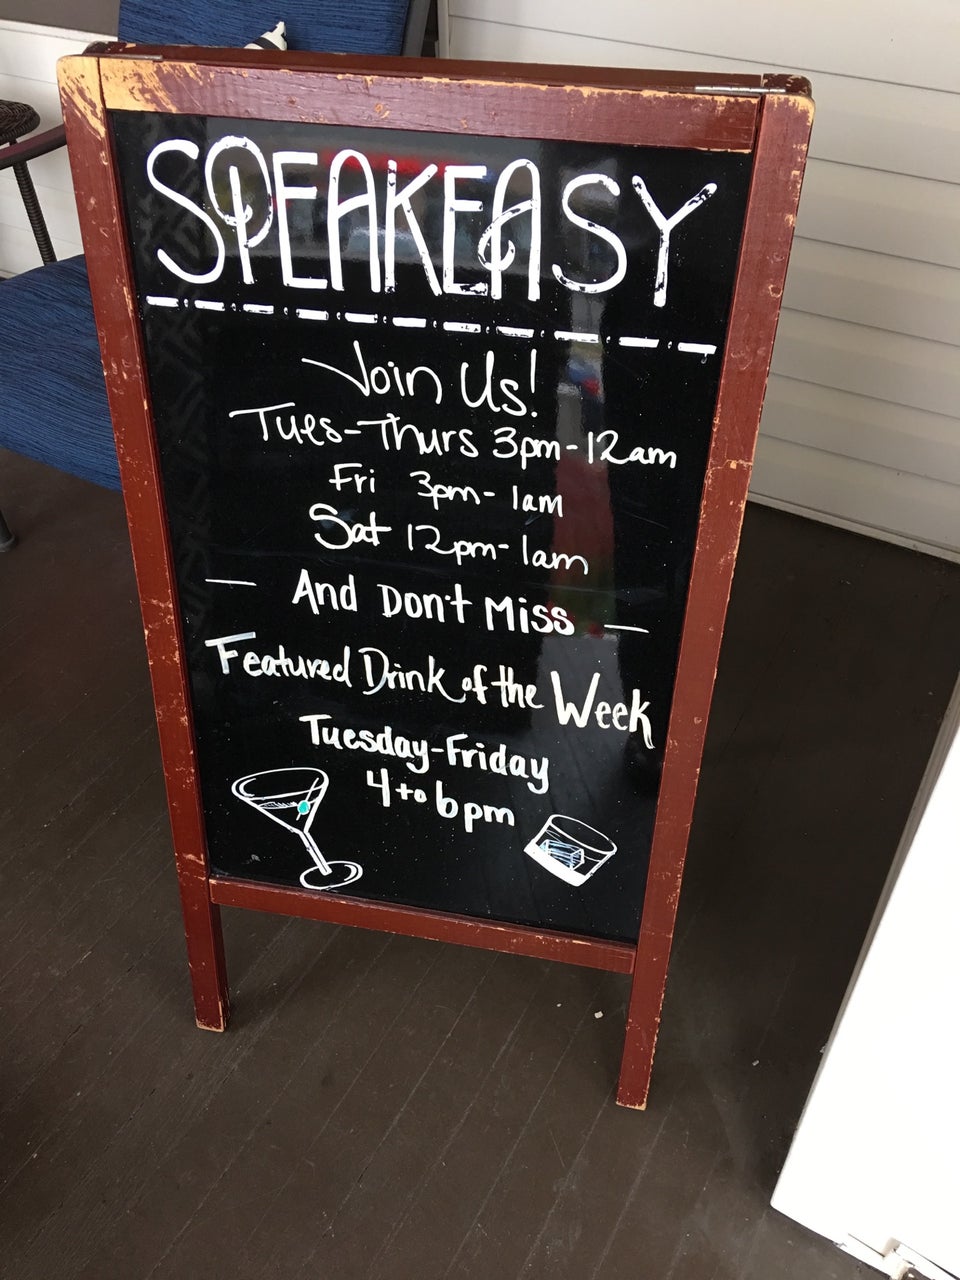 SPEAKEASY
Join Us!
Tues-Thurs 3pm-12am
Fri 3pm-1am
Sat 12pm-1am
— And Don't Miss —
Featured Drink of the Week
Tuesday-Friday
4 to 6pm